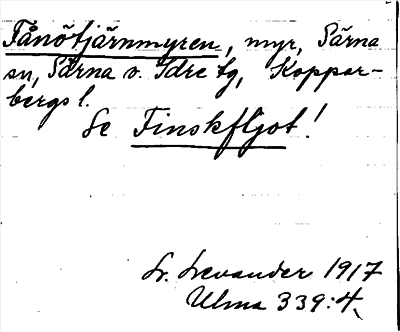 Fånötjärnmyren, myr, Särna
sn, Särna o. Idre tg, Koppar-
bergs l.
Se Finskfljot!
Lr. Levander 1917
Ulma 339:4.